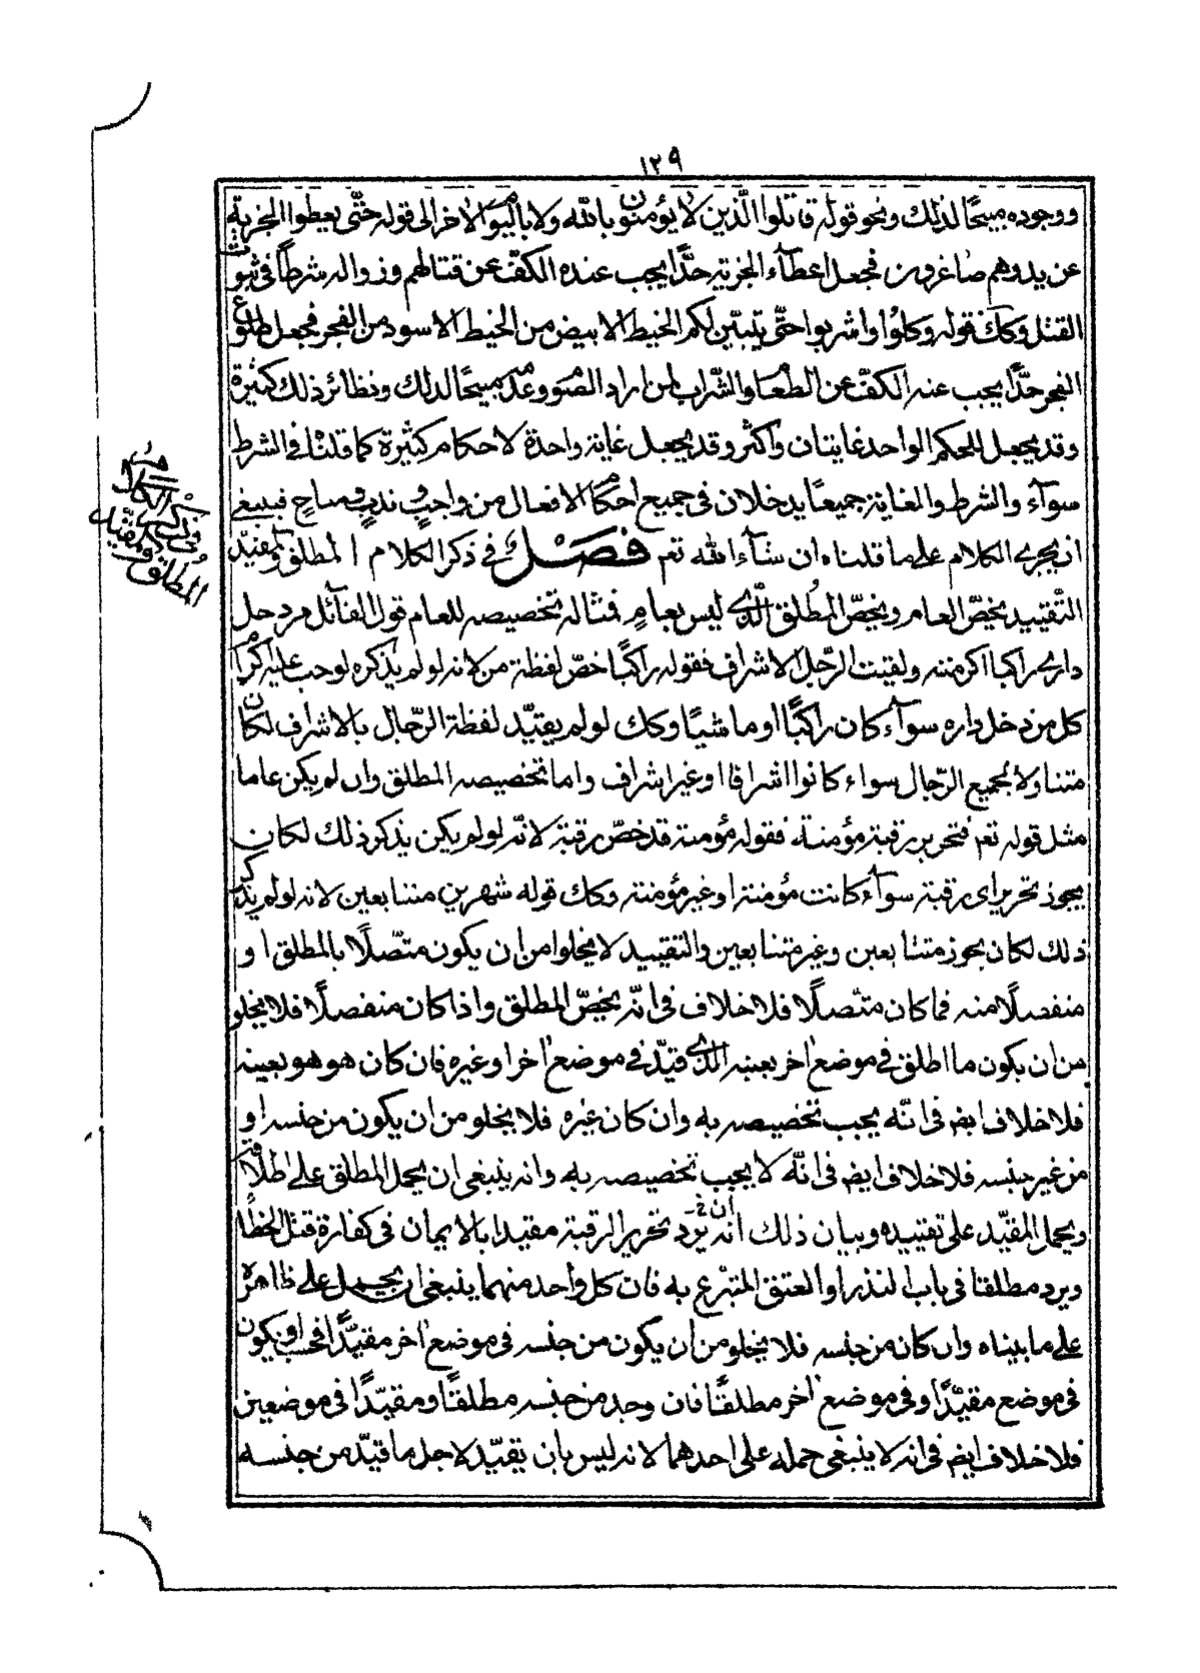 ١٢٩
ووجوده مبيحًا لذلك ونحو قوله قاتلوا الّذين لا يؤمنون بالله ولا باليوم الاخر الى قوله حتّى يعطوا الجزية
عن يد وهم صاغرون فجعل اعطآء الجزية حدًّا يجب عنده الكفّ عن قتالهم وزواله شرطًا فى ثبوت
القتل وكك قوله وكلوا واشربوا حتّى يتبيّن لكم الخيط الابيض من الخيط الاسود من الفجر فجعل طلوع
الفجر حدًّا يجب عنه الكفّ عن الطعام والشّراب لمن اراد الصوم وعدمه مبيحًا لذلك ونظائر ذلك كثيرة
وقد يجعل للحكم الواحد غايتان واكثر وقد يجعل غاية واحدة لاحكام كثيرة كما قلنا فى الشرط
سوآء والشرط والغاية جميعًا يدخلان فى جميع احكام الافعال من واجب وندب ومباح فينبغى
ان يجرى الكلام على ما قلناه ان شآء الله تعم فصل فى ذكر الكلام المطلق والمقيّد
التّقييد يخصّ العام ويخصّ المطلق الّذى ليس بعامٍ فمثاله تخصيصه للعام قول القآئل من دخل
دارى راكبا اكرمته ولقيت الرّجل الاشراف فقوله راكبًا خصّ لفظة من لانه لو لم يذكره لوجب عليه اكرام
كل من دخل داره سوآء كان راكبًا او ماشيًا وكك لو لم يقيّد لفظة الرّجال بالاشراف لكان
متناولا لجميع الرّجال سواء كانوا اشرافا او غير اشراف واما تخصيصه المطلق وان لم يكن عاما
مثل قوله تعم فتحرير رقبة مؤمنة فقوله مؤمنة قد خصّ رقبة لانّه لو لم يكن يذكر ذلك لكان
يجوز تحرير اى رقبة سوآء كانت مؤمنة او غير مؤمنة وكك قوله شهرين متتابعين لانه لو لم يذكر
ذلك لكان يجوز متتابعين وغير متتابعين والتقييد لا يخلوا من ان يكون متّصلًا بالمطلق او
منفصلًا منه فما كان متّصلًا فلا خلاف فى انّه يخصّ المطلق واذا كان منفصلًا فلا يخلو
من ان يكون ما اطلق فى موضع اخر بعينه الّذى قيّد فى موضع اخر او غيره فان كان هو هو بعينه
فلا خلاف ايضم فى انّه يجب تخصيصه به وان كان غيره فلا يخلو من ان يكون من جنسه او
من غير جنسه فلا خلاف ايضم فى انّه لا يجب تخصيصه به وانه ينبغى ان يحمل المطلق على اطلاقه
ويحمل المقيّد على تقييده وبيان ذلك انه ان يرد تحرير الرقبة مقيدا بالايمان فى كفارة قتل الخطأ
ويرد مطلقا فى باب النذر او العتق المتبرّع به فان كل واحد منهما ينبغى ان يحمل على ظاهره
على ما بيناه وان كان من جنسه فلا يخلو من ان يكون من جنسه فى موضع اخر مقيّدًا فحسب او يكون
فى موضع مقيّدًا وفى موضع اخر مطلقًا فان وجد من جنسه مطلقًا ومقيّدًا فى موضعين
فلا خلاف ايضم فى انه لا ينبغى حمله على احدهما لانه ليس بان يقيّد لاجل ما قيّد من جنسه
فى ذكر الكلام
المطلق ومقيّد